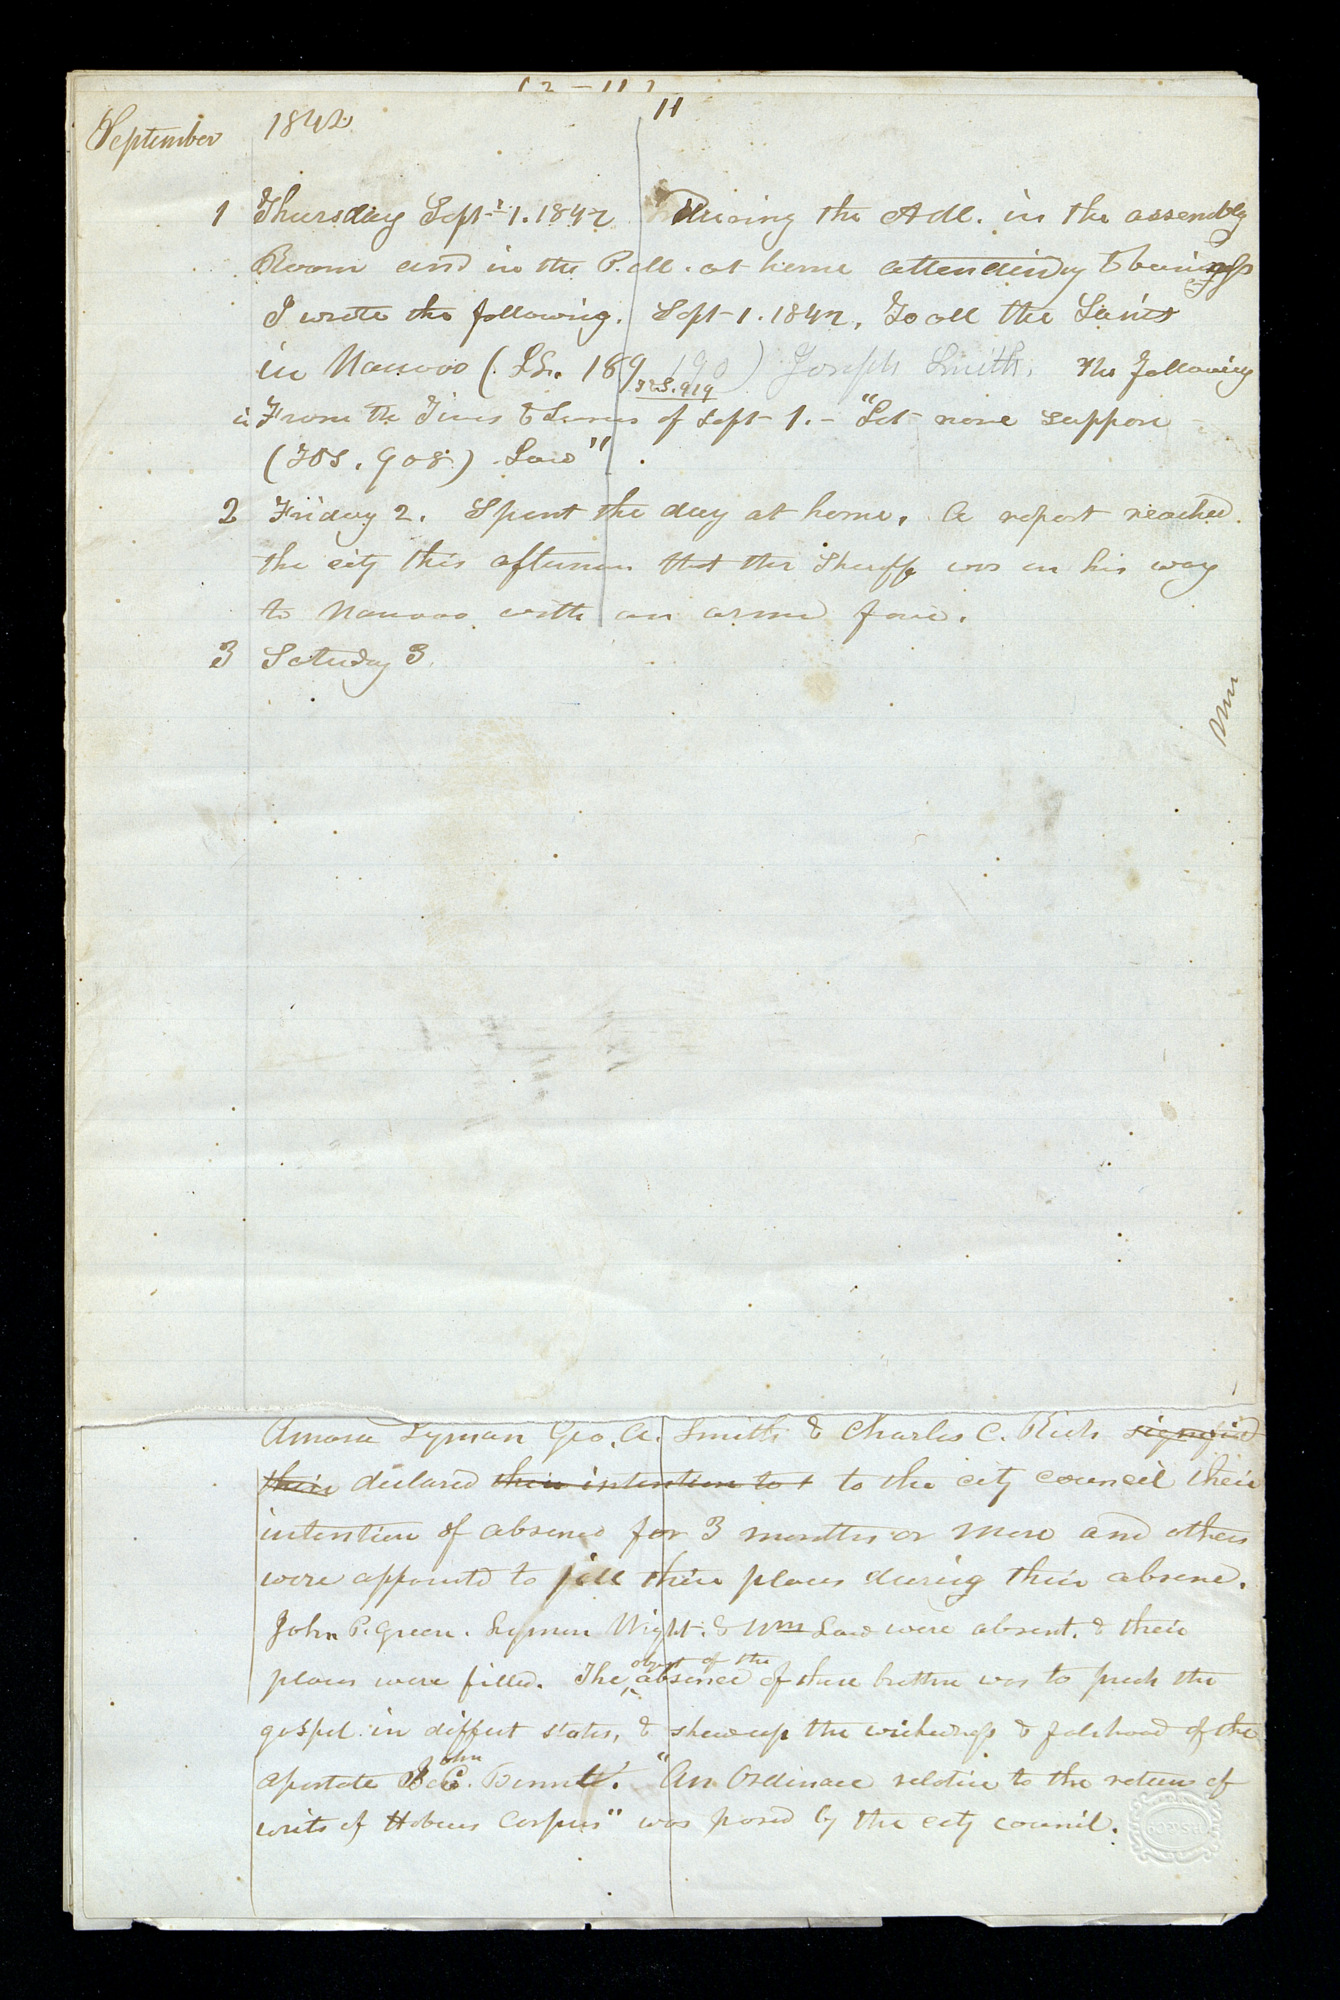 11
September 1842
1 Thursday Sept 1. 1842 During the A M. in the assembly
Room and in the P. M. at home attending to business
I wrote the following. Sept 1. 1842. To all the Saints
in Nauvoo (L.L. 189 190) Joseph Smith. The following
T&S. 919
is From the Times & Seasons of Sept 1. - "Let none suppose
(T&S. 908) Law"
2 Friday 2. Spent the day at home. A report reached
the city this afternoon that the Sheriff was on his way
to Nauvoo with an armed force.
3 Saturday 3.
Amasa Lyman Geo. A. Smith & Charles C. Rich signified
their declared their intention to t to the city council their
intention of absence for 3 months or more and others
were appointed to fill their places during their absence.
John P. Green. Lyman Wight. & Wm Law were absent. & their
object of the
places were filled. The absence of these brethren was to preach the
gospel in different states, & shew up the wickedness & falshood of the
ohn
apostate J C. Bennett. "An Ordinance relative to the return of
writs of Habeus Corpus" was passed by the city council.